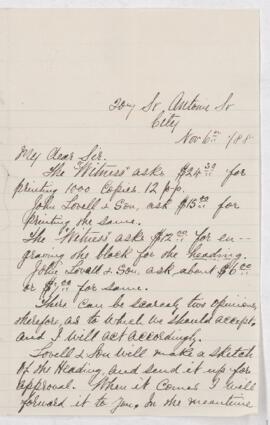 St Antoine St
City
Nov 6th /88
My Dear Sir.
The "Witness" asks $24.30 for
printing 1000 Copies 12 p.p.
John Lovell & Son, ask $15.00 for
printing the same.
The "Witness" asks $12.00 for en-
graving the block for the heading.
John Lovell & Son, ask about $6.00
or $7.00 for same.
There can be scarcely two opinions,
therefore, as to which we should accept,
and I will act accordingly.
Lovell & Son will make a sketch
of the Heading, and send it up for
approval. When it comes I will
forward it to you. In the meantime